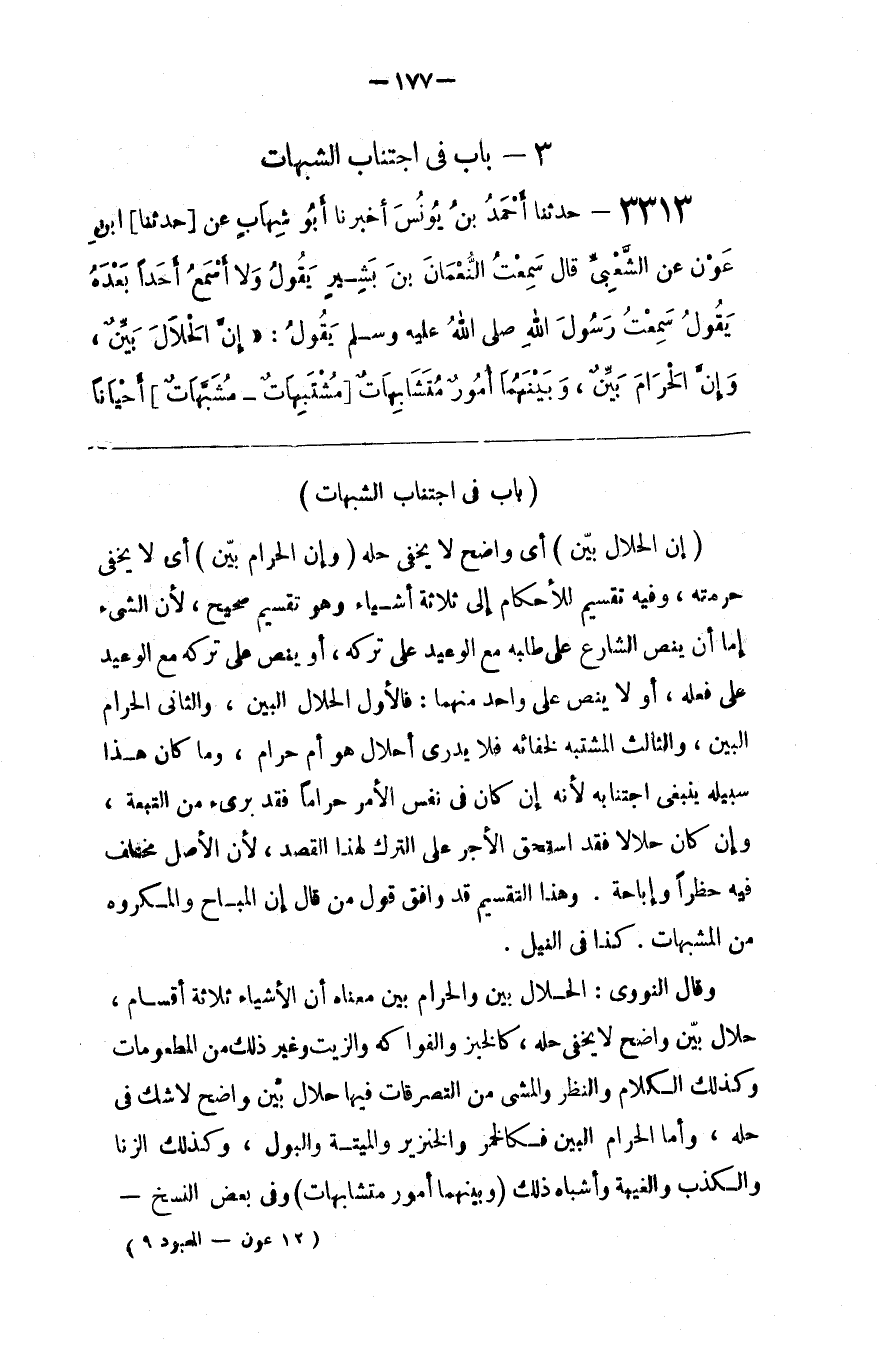 — ١٧٧ —
٣ — باب فى اجتناب الشبهات
٣٣١٣ — حدثنا أَحْمَدُ بنُ يُونُسَ أخبرنا أَبُو شِهَابٍ عن [حدثنا] ابنِ
عَوْنٍ عن الشَّعْبِىِّ قال سَمِعْتُ النُّعْمَانَ بنَ بَشِيرٍ يَقُولُ وَلا أَسْمَعُ أَحَداً بَعْدَهُ
يَقُولُ سَمِعْتُ رَسُولَ اللهِ صلى اللهُ عليه وسلم يَقُولُ : « إِنَّ الْحَلَالَ بَيِّنٌ ،
وَإِنَّ الْحَرَامَ بَيِّنٌ ، وَبَيْنَهُمَا أُمُورٌ مُتَشَابِهَاتٌ [مُشْتَبِهَاتٌ — مُشَبَّهَاتٌ] أَحْيَاناً
( باب فى اجتناب الشبهات )
( إن الحلال بيّن ) أى واضح لا يخفى حله ( وإن الحرام بيّن ) أى لا يخفى
حرمته ، وفيه تقسيم للأحكام إلى ثلاثة أشياء وهو تقسيم صحيح ، لأن الشىء
إما أن ينص الشارع على طلبه مع الوعيد على تركه ، أو ينص على تركه مع الوعيد
على فعله ، أو لا ينص على واحد منهما : فالأول الحلال البين ، والثانى الحرام
البين ، والثالث المشتبه لخفائه فلا يدرى أحلال هو أم حرام ، وما كان هذا
سبيله ينبغى اجتنابه لأنه إن كان فى نفس الأمر حراماً فقد برىء من التبعة ،
وإن كان حلالا فقد استحق الأجر على الترك لهذا القصد ، لأن الأصل مختلف
فيه حظراً وإباحة . وهذا التقسيم قد وافق قول من قال إن المباح والمكروه
من المشبهات . كذا فى النيل .
وقال النووى : الحلال بين والحرام بين معناه أن الأشياء ثلاثة أقسام ،
حلال بيّن واضح لا يخفى حله ، كالخبز والفواكه والزيت وغير ذلك من المطعومات
وكذلك الكلام والنظر والمشى من التصرفات فيها حلال بيّن واضح لاشك فى
حله ، وأما الحرام البين فكالخمر والخنزير والميتة والبول ، وكذلك الزنا
والكذب والغيبة وأشباه ذلك (وبينهما أمور متشابهات) وفى بعض النسخ —
( ١٢ عون — المعبود ٩ )